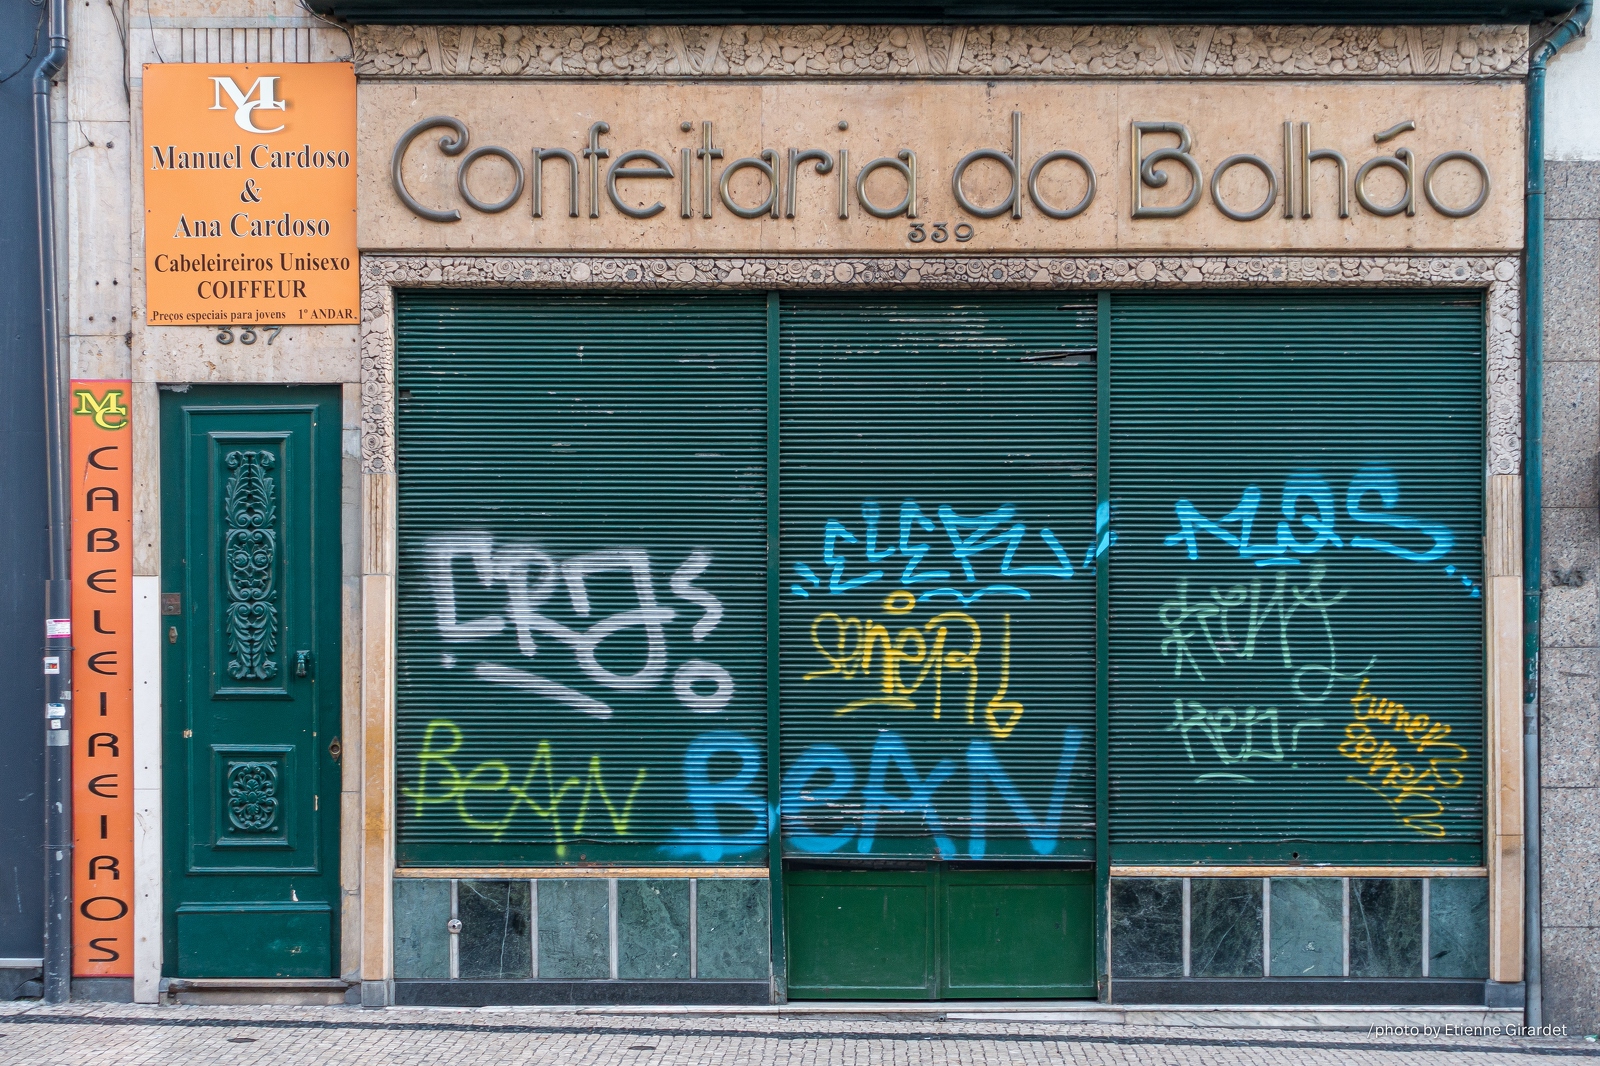 MC
Manuel Cardoso
&
Ana Cardoso
Cabeleireiros Unisexo
COIFFEUR
Preços especiais para jovens 1º ANDAR
337
MC
CABELEIREIROS
Confeitaria do Bolháo
339
BeAN
BeAN
/photo by Etienne Girardet